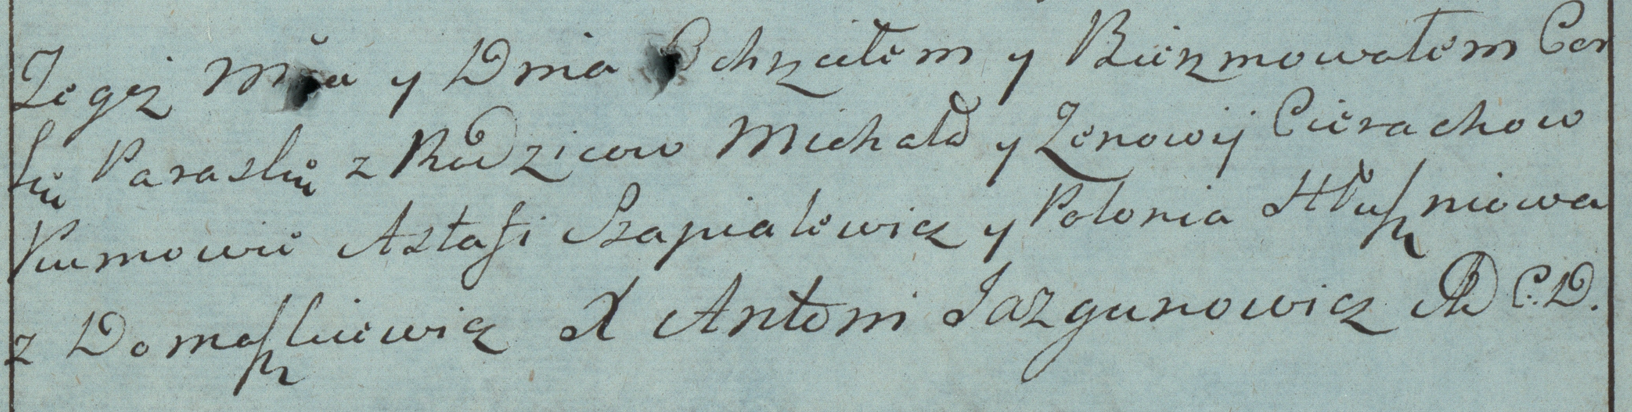 Tegoż Mca y Dnia Ochrzciłem y Bierzmowałem Cor
kę Paraskę z Rodzicow Michała y Zenowij Cierachow
Kumowie Astafi Szapialewicz y Polonia Hłuszniowa
z Domaszkiewicz X Antoni Jazgunowicz P C. D.